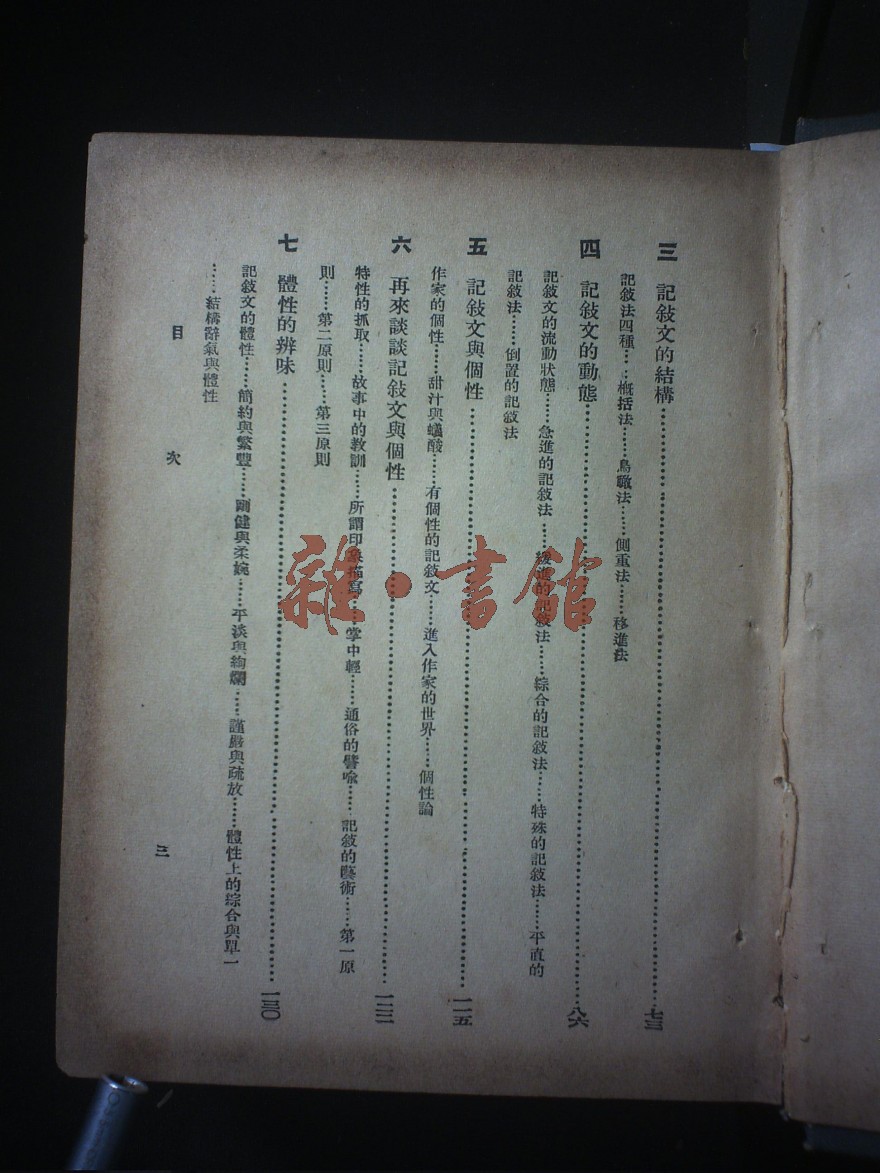 三 記敍文的結構……七三
記敍法四種……概括法……鳥瞰法……側重法……移進法
四 記敍文的動態……八六
記敍文的流動狀態……急進的記敍法……緩進的記敍法……綜合的記敍法……特殊的記敍法……平直的
記敍法……倒置的記敍法
五 記敍文與個性……一一五
作家的個性……甜汁與蟻酸……有個性的記敍文……進入作家的世界……個性論
六 再來談談記敍文與個性……一二二
特性的抓取……故事中的教訓……所謂印象描寫……掌中輕……通俗的譬喩……記敍的藝術……第一原
則……第二原則……第三原則
七 體性的辨味……一三〇
記敍文的體性……簡約與繁豐……剛健與柔婉……平淡與絢爛……謹嚴與疏放……體性上的綜合與單一
……結構辭氣與體性
目 次 三
雜·書館